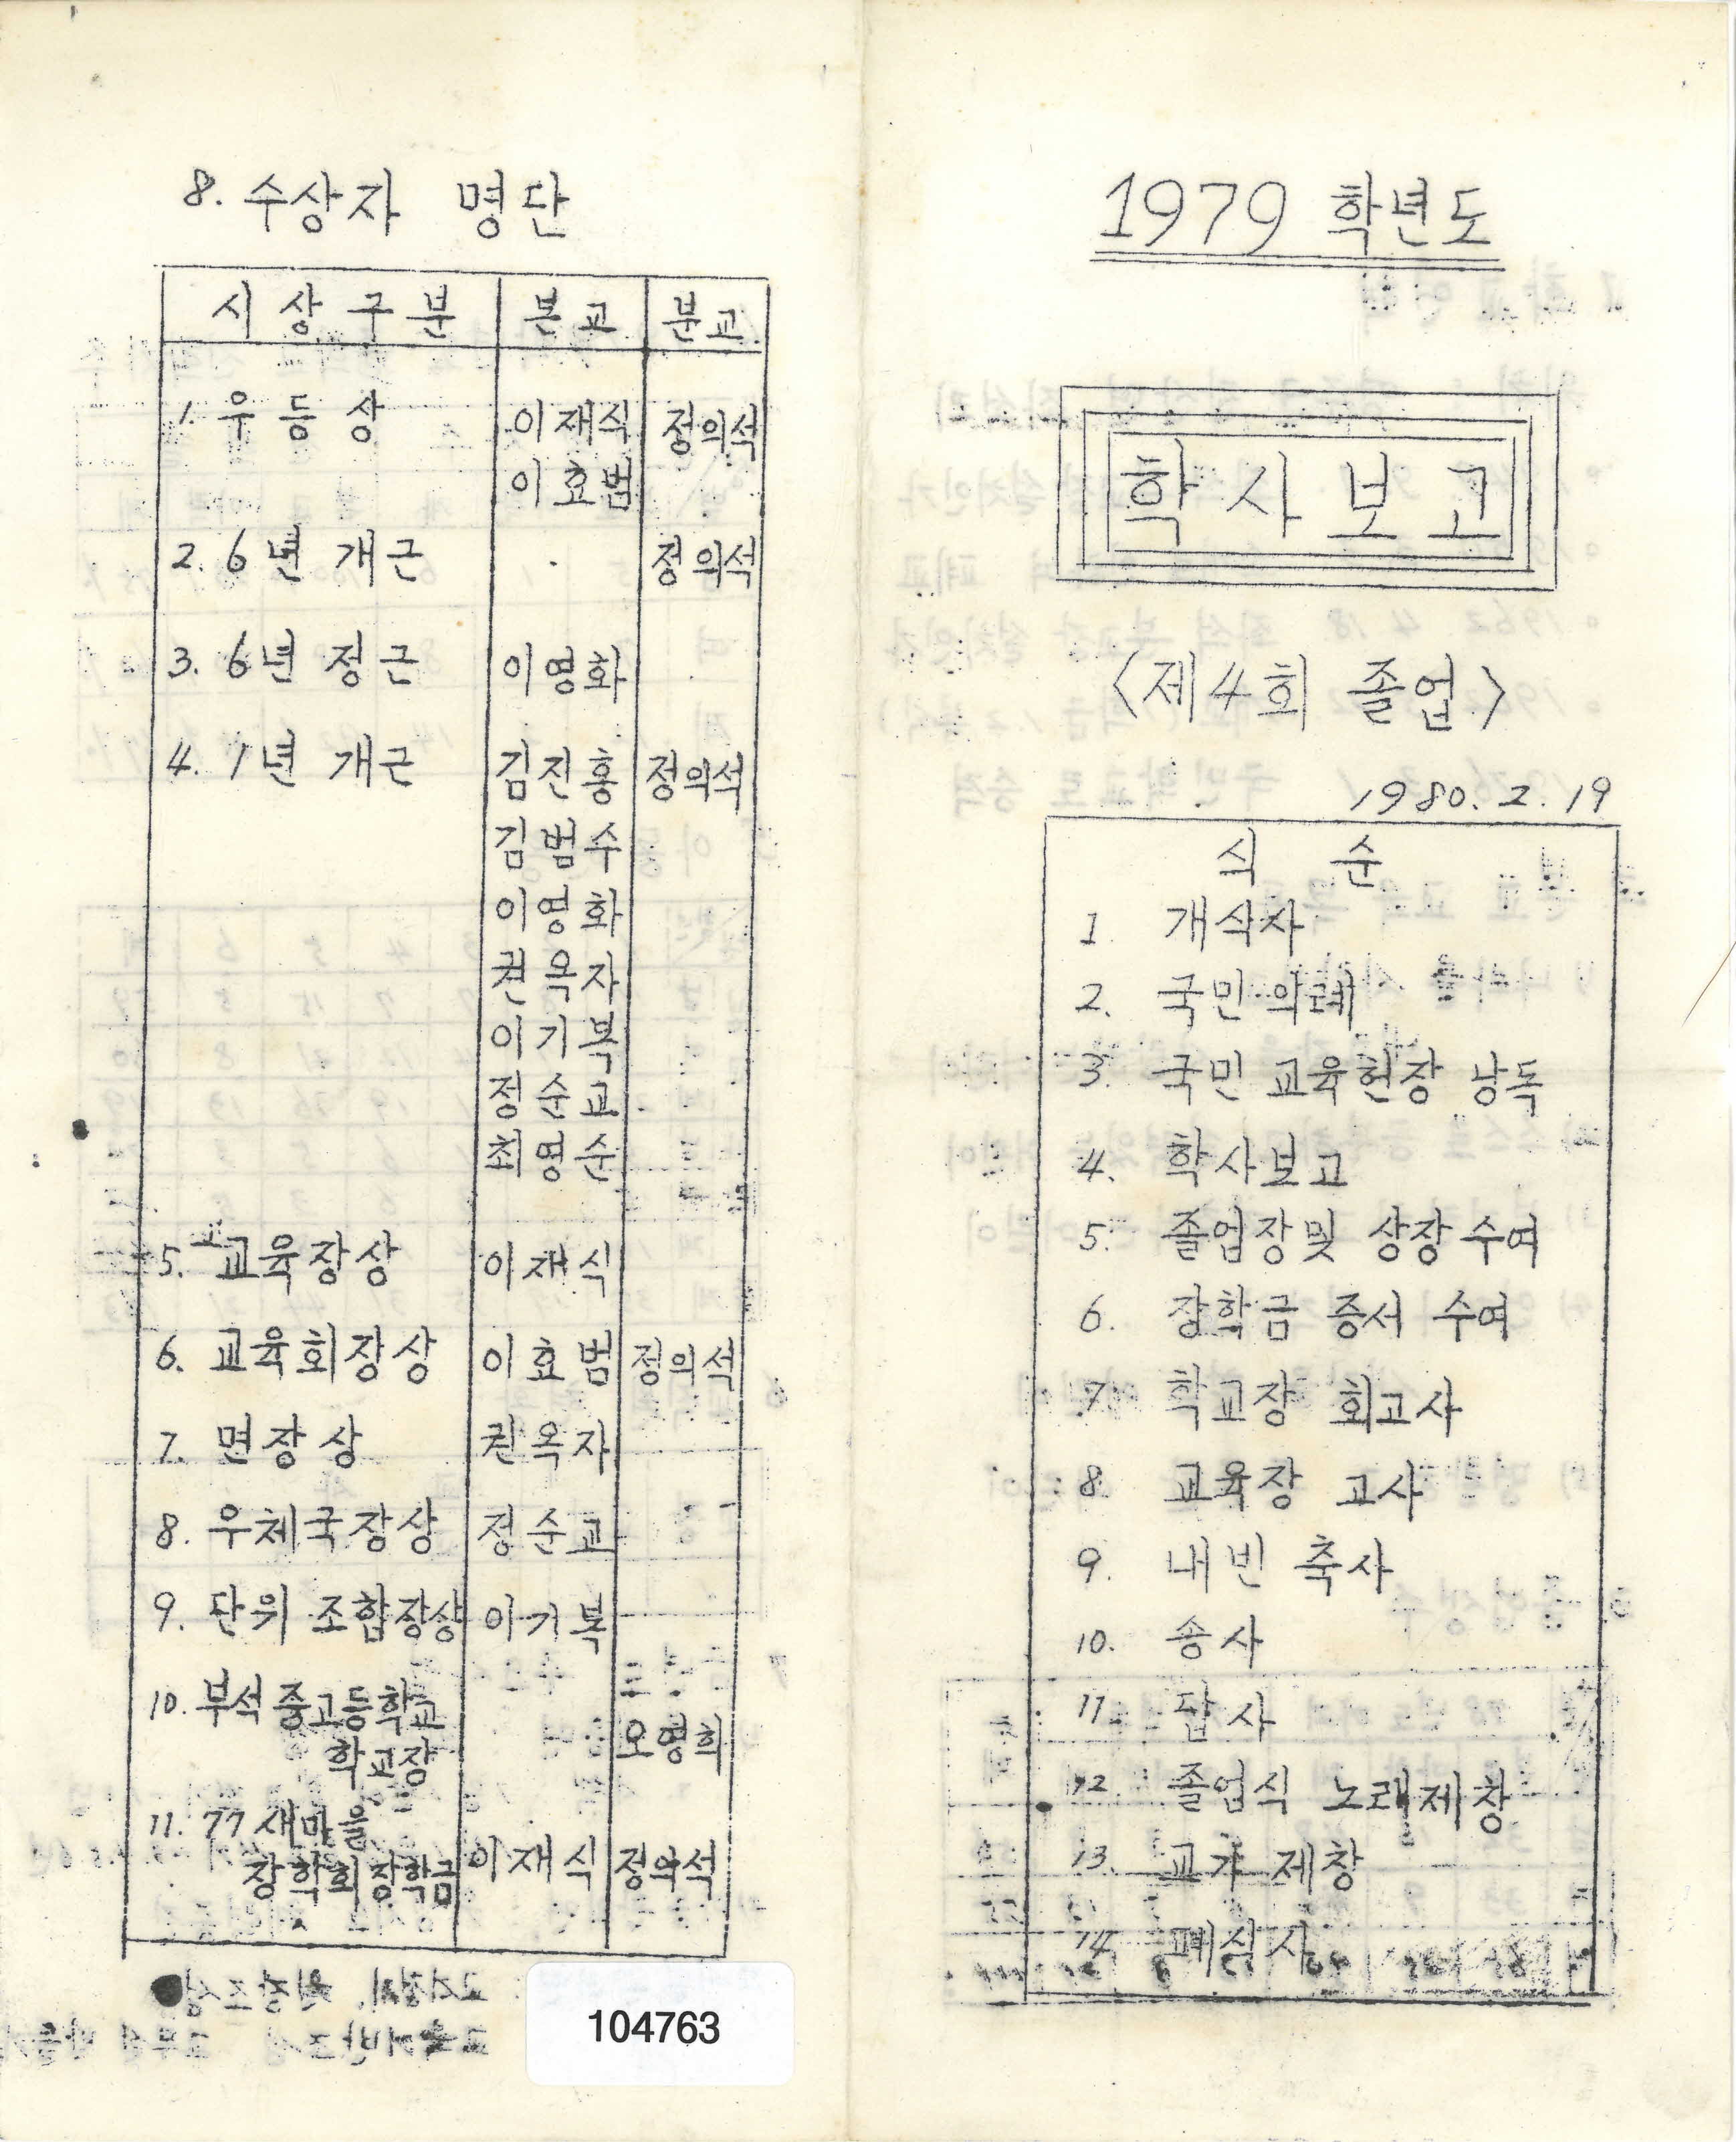 8. 수상자 명단
시상구분 본교 분교
1. 우등상 이재식 정의석
이효범
2. 6년 개근 · 정의석
3. 6년 정근 이영화 ·
4. 1년 개근 김진홍 정의석
김범수
이영화
권옥자
이기복
정순교
최영순
5. 교육장상 이재식
6. 교육회장상 이효범 정의석
7. 면장상 권옥자
8. 우체국장상 정순교
9. 단위 조합장상 이기복
10. 부석중고등학교
학교장 오영희
11. 77 새마을
장학회장학금 이재식 정의석
104763
1979 학년도
학사보고
<제4회 졸업>
1980. 2. 19
식 순
1. 개식사
2. 국민의례
3. 국민 교육헌장 낭독
4. 학사보고
5. 졸업장및 상장수여
6. 장학금 증서 수여
7. 학교장 회고사
8. 교육장 고사
9. 내빈 축사
10. 송사
11. 답사
12. 졸업식 노래제창
13. 교가 제창
14. 폐식사